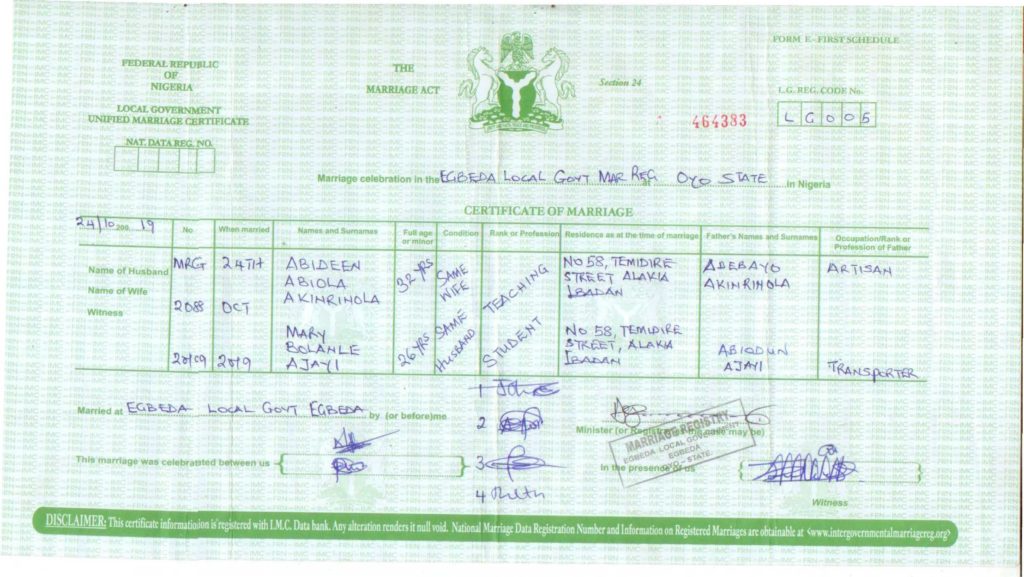 FORM E-FIRST SCHEDULE
FEDERAL REPUBLIC
OF
NIGERIA
LOCAL GOVERNMENT
UNIFIED MARRIAGE CERTIFICATE
NAT. DATA REG. NO.
THE
MARRIAGE ACT
Section 24
464383
L.G. REG. CODE No.
LG005
Marriage celebration in the EGBEDA LOCAL GOVT MAR REG at OYO STATE in Nigeria
CERTIFICATE OF MARRIAGE
24/10 200 19
No When married Names and Surnames Full age or minor Condition Rank or Profession Residence as at the time of marriage Father's Names and Surnames Occupation/Rank or Profession of Father
Name of Husband MRG 24TH ABIDEEN ABIOLA AKINRINOLA 32 YRS SAME WIFE TEACHING NO 58, TEMIDIRE STREET ALAKIA IBADAN ADEBAYO AKINRINOLA ARTISAN
Name of Wife 2088 OCT
Witness
2019 2019 MARY BOLANLE AJAYI 26 YRS SAME HUSBAND STUDENT NO 58, TEMIDIRE STREET, ALAKIA IBADAN ABIODUN AJAYI TRANSPORTER
Married at EGBEDA LOCAL GOVT EGBEDA by (or before)me
1
2
3
4
Minister (or Registrar as the case may be)
MARRIAGE REGISTRY
EGBEDA LOCAL GOVERNMENT
EGBEDA
OYO - STATE.
This marriage was celebrated between us
In the presence of us
Witness
DISCLAIMER: This certificate information is registered with I.M.C. Data bank. Any alteration renders it null void. National Marriage Data Registration Number and Information on Registered Marriages are obtainable at <www.intergovernmentalmarriagereg.org>